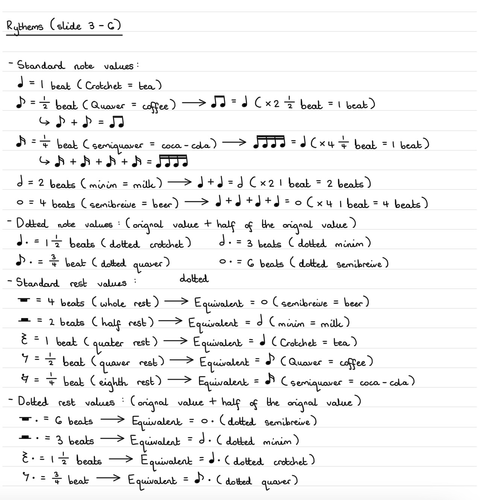 Rythems (slide 3 - 6)
- Standard note values:
♩ = 1 beat (Crotchet = tea)
♪ = 1/2 beat (Quaver = coffee) → ♫ = ♩ (×2 1/2 beat = 1 beat)
↳ ♪ + ♪ = ♫
𝅘𝅥𝅯 = 1/4 beat (semiquaver = coca-cola) → 𝅘𝅥𝅯𝅘𝅥𝅯𝅘𝅥𝅯𝅘𝅥𝅯 = ♩ (×4 1/4 beat = 1 beat)
↳ 𝅘𝅥𝅯 + 𝅘𝅥𝅯 + 𝅘𝅥𝅯 + 𝅘𝅥𝅯 = 𝅘𝅥𝅯𝅘𝅥𝅯𝅘𝅥𝅯𝅘𝅥𝅯
𝅗𝅥 = 2 beats (minim = milk) → ♩ + ♩ = 𝅗𝅥 (×2 1 beat = 2 beats)
o = 4 beats (semibreive = beer) → ♩ + ♩ + ♩ + ♩ = o (×4 1 beat = 4 beats)
- Dotted note values: (orignal value + half of the orignal value)
♩. = 1 1/2 beats (dotted crotchet) 𝅗𝅥. = 3 beats (dotted minim)
♪. = 3/4 beat (dotted quaver) o. = 6 beats (dotted semibreive)
- Standard rest values: dotted
𝄻 = 4 beats (whole rest) → Equivalent = o (semibreive = beer)
𝄼 = 2 beats (half rest) → Equivalent = 𝅗𝅥 (minim = milk)
𝄽 = 1 beat (quater rest) → Equivalent = ♩ (Crotchet = tea)
𝄾 = 1/2 beat (quaver rest) → Equivalent = ♪ (Quaver = coffee)
𝄿 = 1/4 beat (eighth rest) → Equivalent = 𝅘𝅥𝅯 (semiquaver = coca-cola)
- Dotted rest values: (orignal value + half of the orignal value)
𝄻. = 6 beats → Equivalent = o. (dotted semibreive)
𝄼. = 3 beats → Equivalent = 𝅗𝅥. (dotted minim)
𝄽. = 1 1/2 beats → Equivalent = ♩. (dotted crotchet)
𝄾. = 3/4 beat → Equivalent = ♪. (dotted quaver)